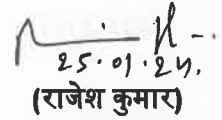 25.01.24.
(राजेश कुमार)